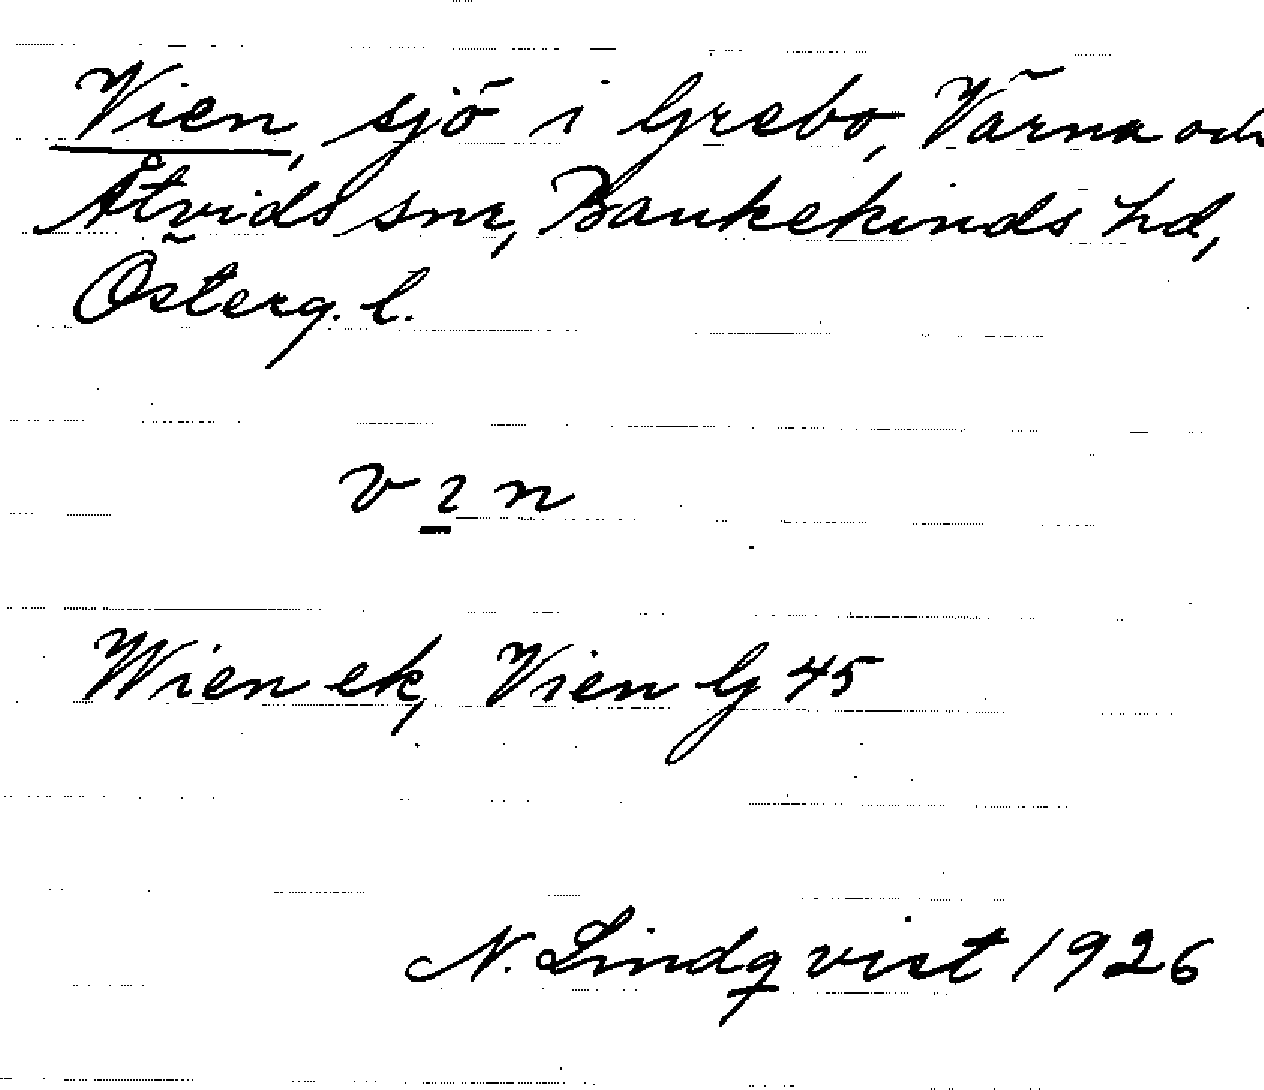 Vien, sjö i Grebo, Värna och
Åtvids snr, Bankekinds hd,
Österg. l.
v ɿ n
Wien ek, Vien G 45
N. Lindqvist 1926